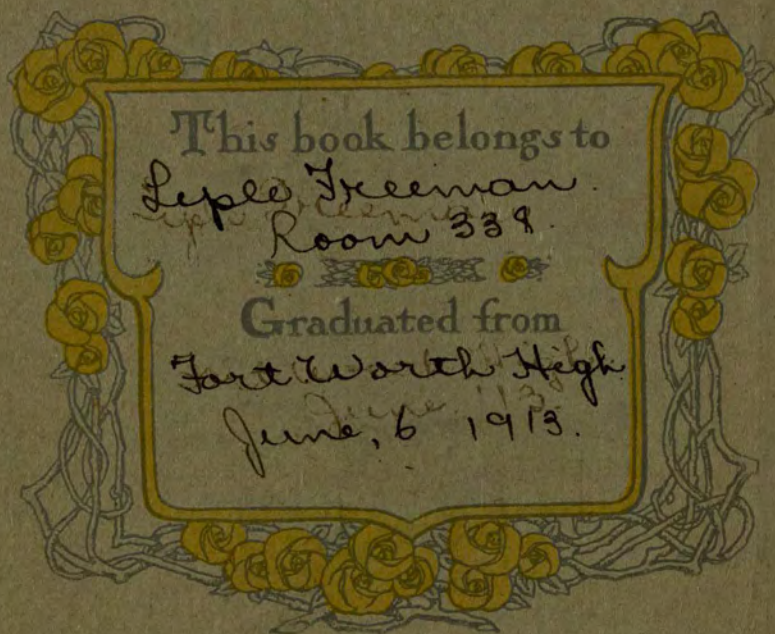 This book belongs to
Leple Freeman.
Room 338.
Graduated from
Fort Worth High
June, 6 1913.